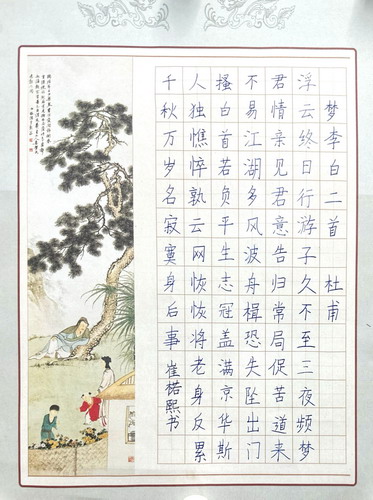 梦李白二首 杜甫
浮云终日行游子久不至三夜频梦
君情亲见君意告归常局促苦道来
不易江湖多风波舟楫恐失坠出门
搔白首若负平生志冠盖满京华斯
人独憔悴孰云网恢恢将老身反累
千秋万岁名寂寞身后事 崔楉熙书